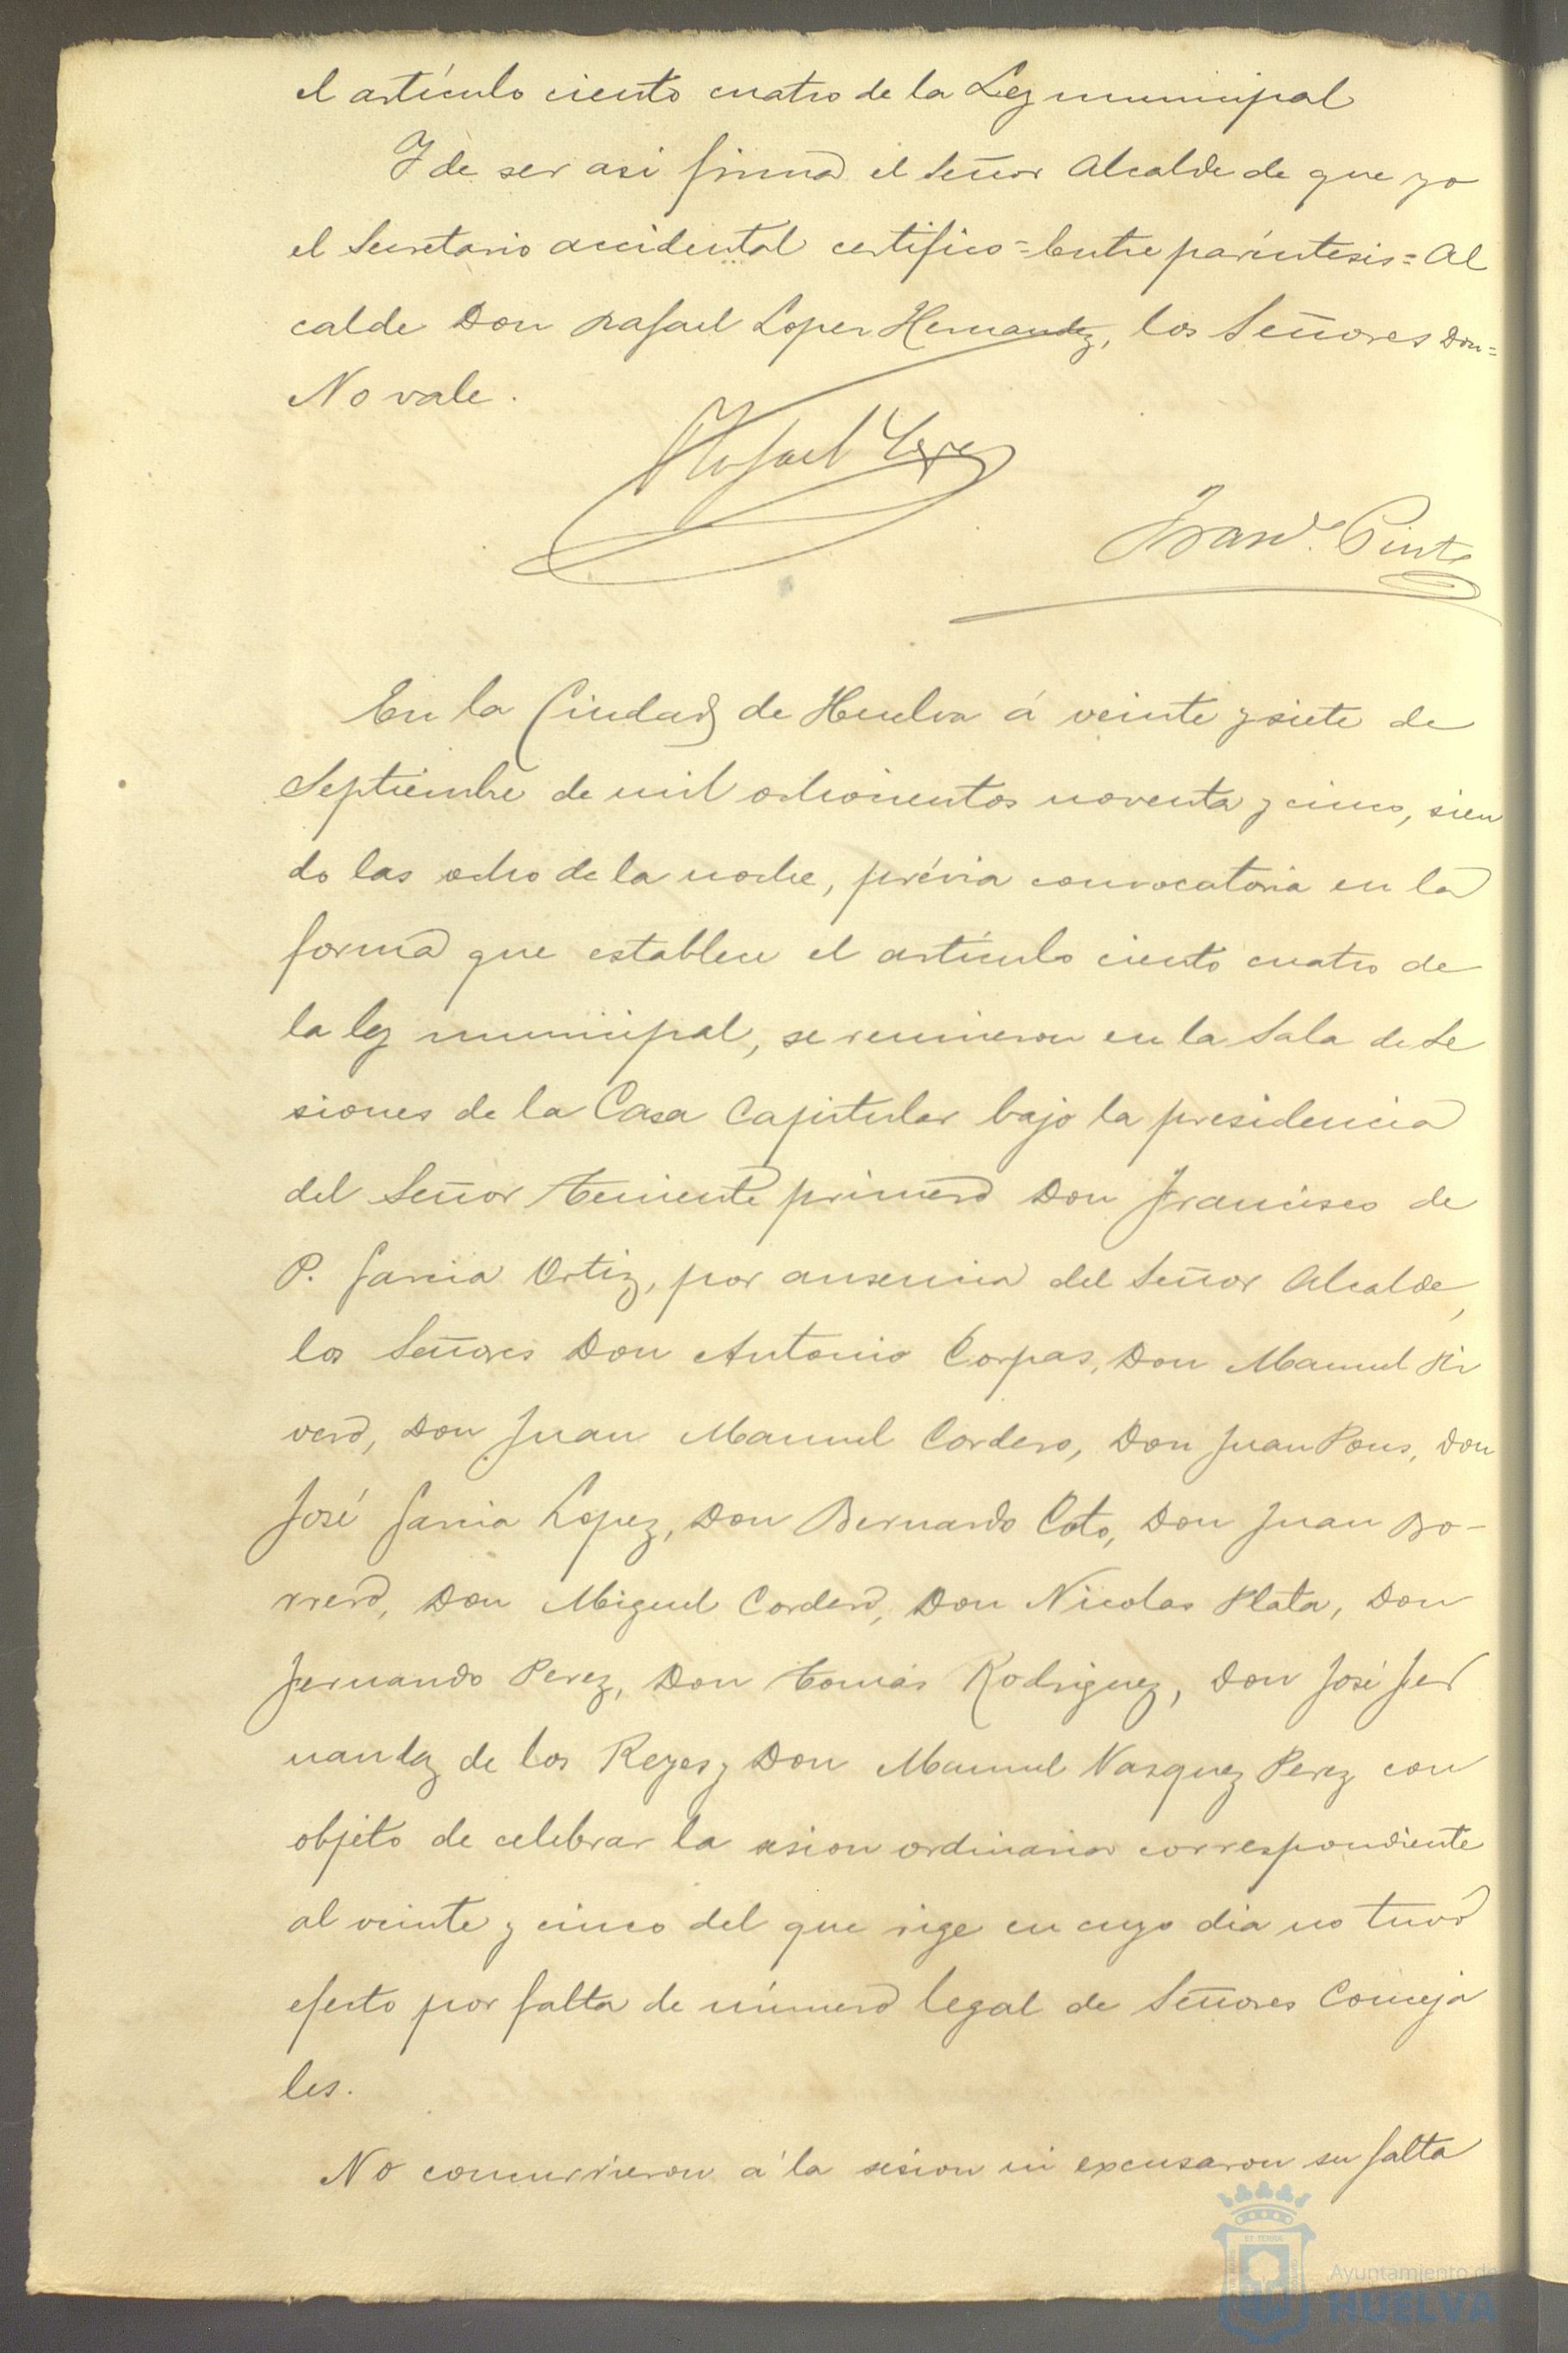 el artículo ciento cuatro de la Ley municipal
Y de ser asi firma el Señor Alcalde de que yo
el Secretario accidental certifico = Entre paréntesis = Al
calde Don Rafael Lopez Hernandez, los Señores Don =
No vale.
Rafael Lopez
Franco. Pinto
En la Ciudad de Huelva á veinte y siete de
Septiembre de mil ochocientos noventa y cinco, sien
do las ocho de la noche, prévia convocatoria en la
forma que establece el artículo ciento cuatro de
la ley municipal, se reunieron en la Sala de Se
siones de la Casa Capitular bajo la presidencia
del Señor Teniente primero Don Francisco de
P. Garcia Ortiz, por ausencia del Señor Alcalde,
los Señores Don Antonio Corpas, Don Manuel Ri
vero, Don Juan Manuel Cordero, Don Juan Pons, Don
José Garcia Lopez, Don Bernardo Coto, Don Juan Bo-
rrero, Don Miguel Cordero, Don Nicolas Plata, Don
Fernando Perez, Don Tomás Rodriguez, Don José Fer
nandez de los Reyes y Don Manuel Vasquez Perez con
objeto de celebrar la sesion ordinaria correspondiente
al veinte y cinco del que rige en cuyo dia no tuvo
efecto por falta de número legal de Señores Conceja
les.
No concurrieron á la sesion ni excusaron su falta
Ayuntamiento de
HUELVA